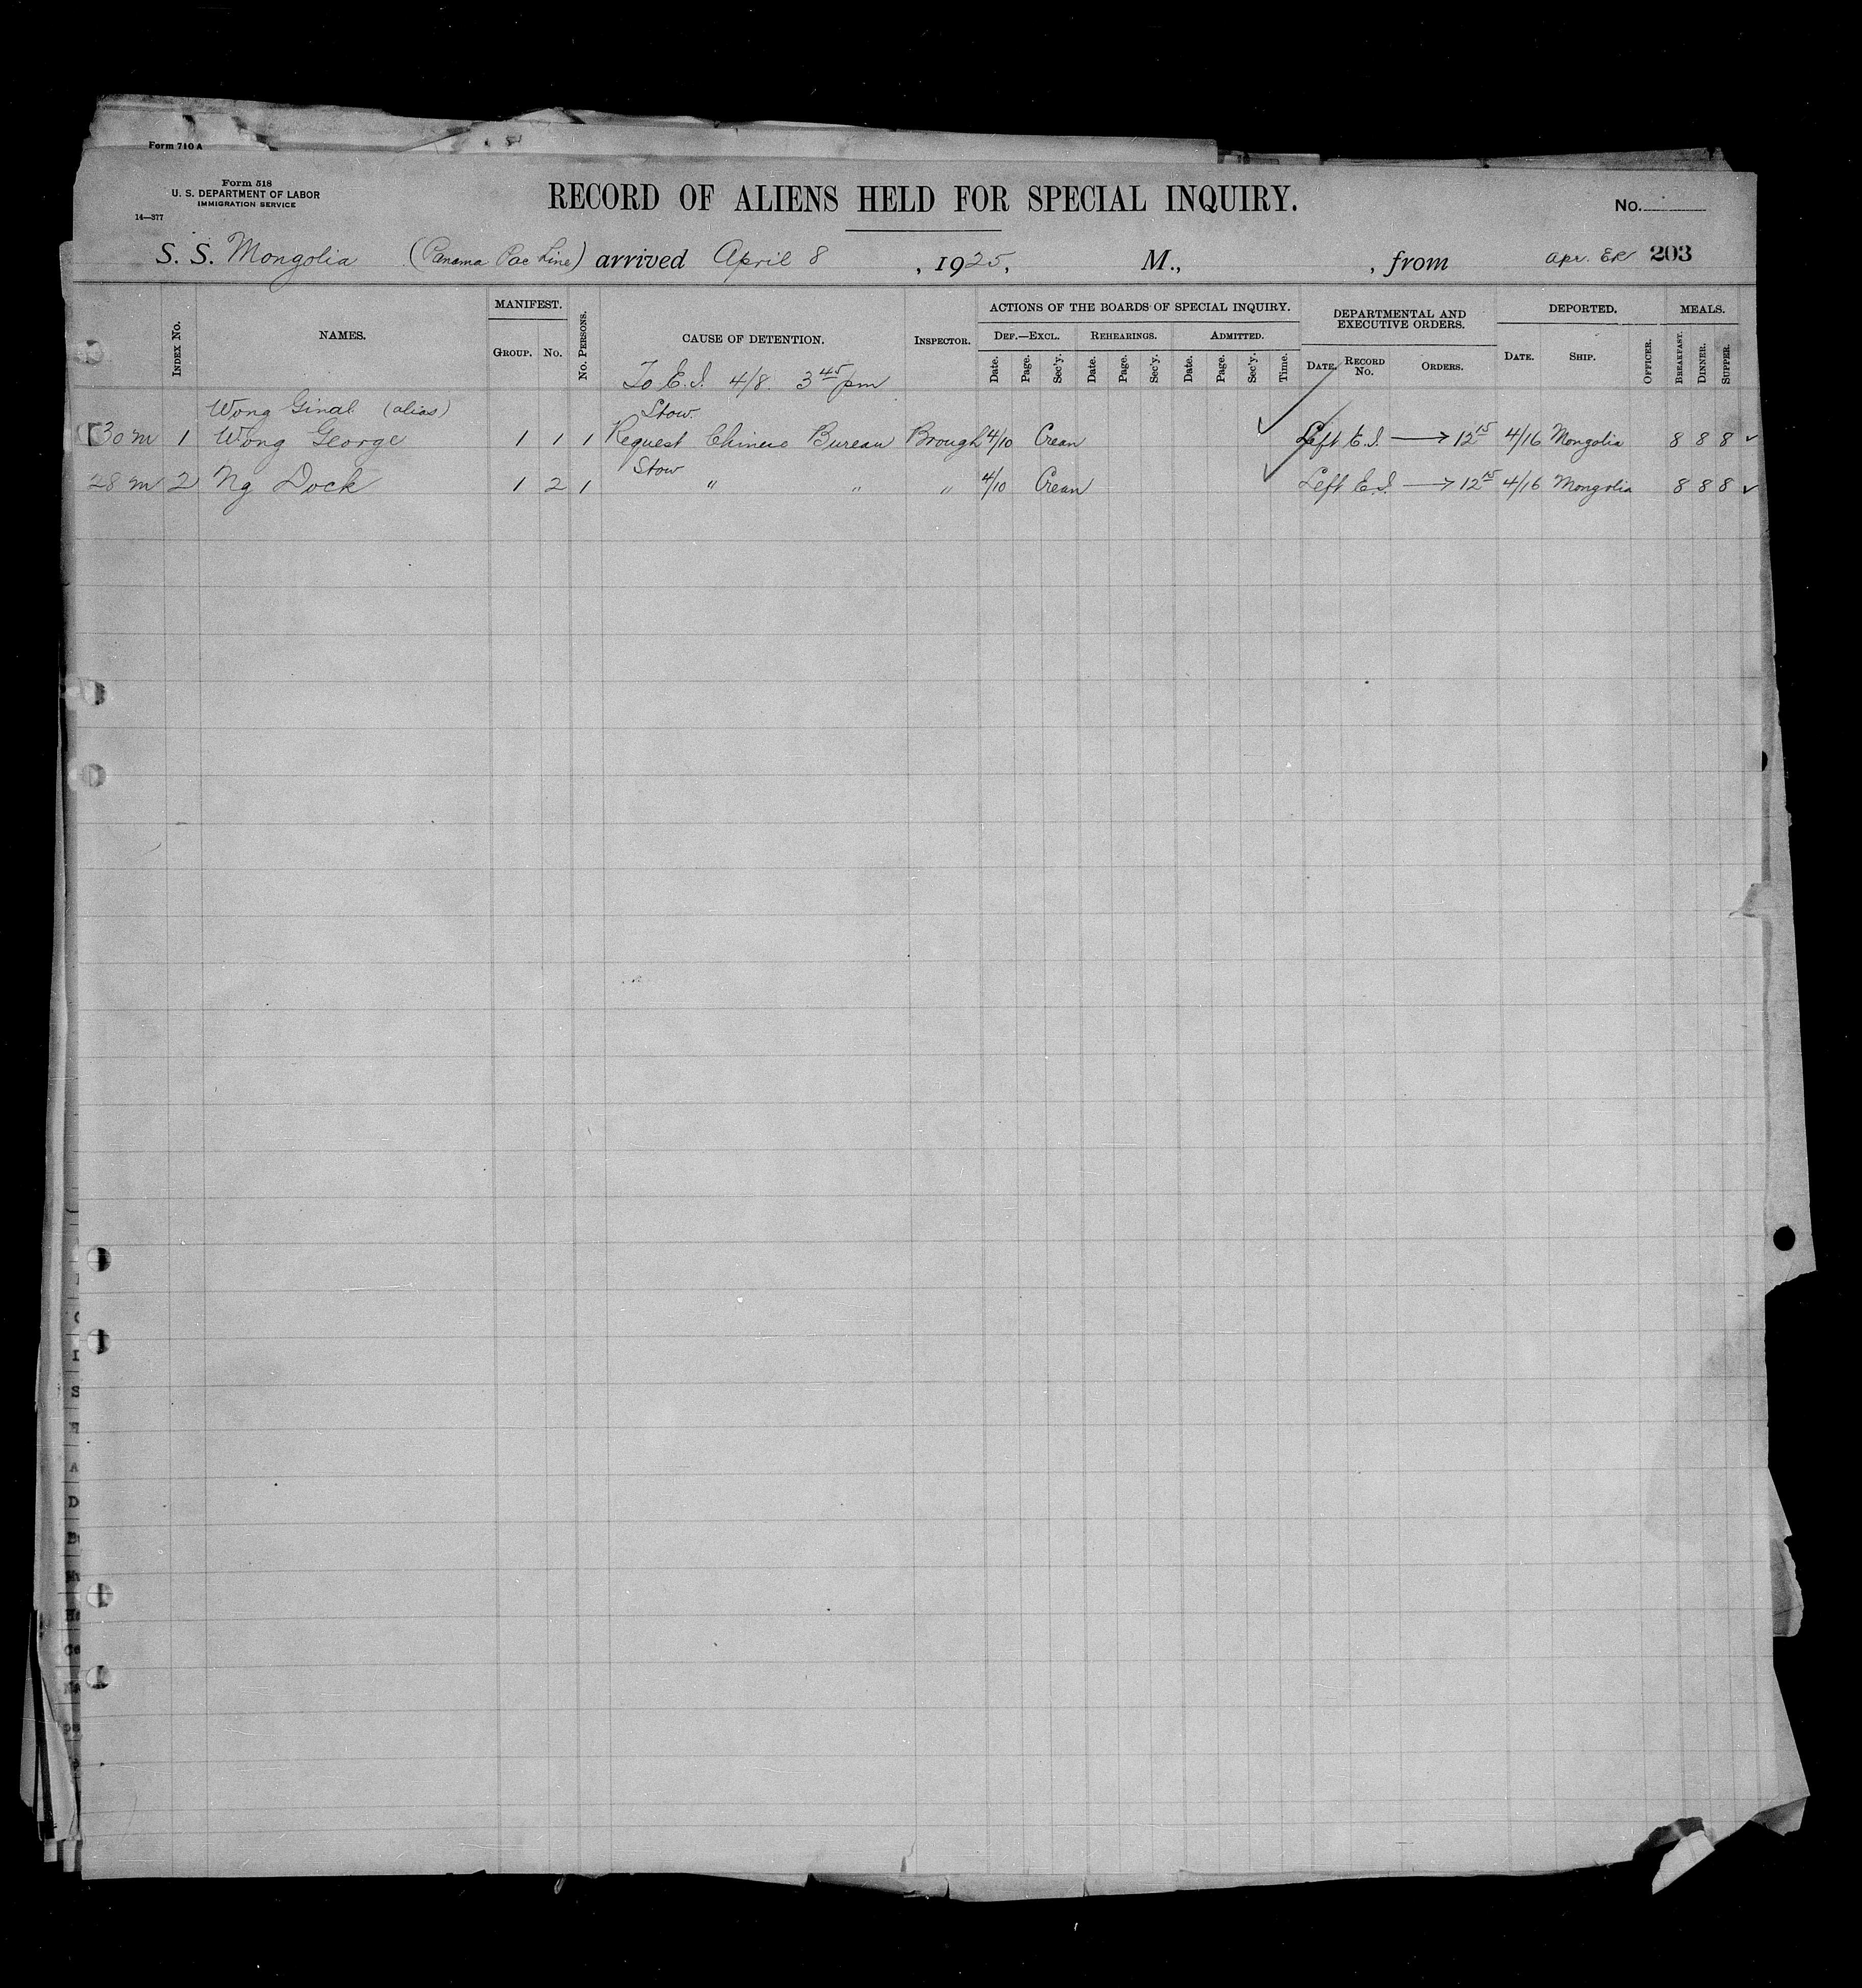 Form 710 A
Form 518
U. S. DEPARTMENT OF LABOR
IMMIGRATION SERVICE
14—377
RECORD OF ALIENS HELD FOR SPECIAL INQUIRY.
No.
S. S. Mongolia (Panama Pac Line) arrived April 8, 1925, M., , from Apr. ER 203
INDEX No. NAMES. MANIFEST. GROUP. No. No. PERSONS. CAUSE OF DETENTION. INSPECTOR. ACTIONS OF THE BOARDS OF SPECIAL INQUIRY. DEF.—EXCL. Date. Page. Sec'y. REHEARINGS. Date. Page. Sec'y. ADMITTED. Date. Page. Sec'y. Time. DEPARTMENTAL AND EXECUTIVE ORDERS. DATE. RECORD No. ORDERS. DEPORTED. DATE. SHIP. OFFICER. MEALS. BREAKFAST. DINNER. SUPPER.
To E.I. 4/8 3 45 pm
Wong Gindl (alias) Stow.
30 m 1 Wong George 1 1 1 Request Chinese Bureau Brough 4/10 Crean ✓ Left E.I. → 12 15 4/16 Mongolia 8 8 8 ✓
Stow
28 m 2 Ng Dock 1 2 1 " " " 4/10 Crean ✓ Left E.I. → 12 15 4/16 Mongolia 8 8 8 ✓